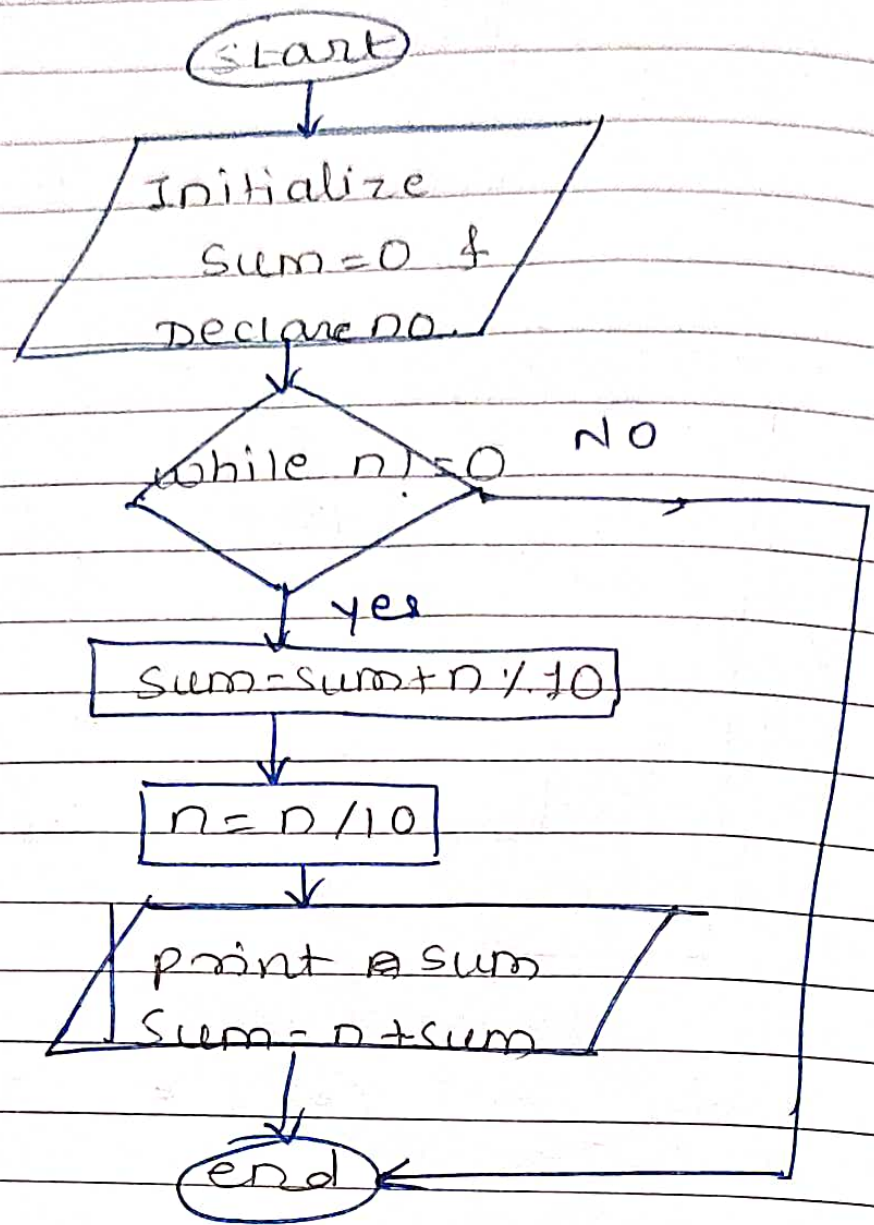 start
Initialize
sum=0 &
Declare no.
while n!=0
NO
yes
sum=sum+n%10
n=n/10
print sum
sum=n+sum
end